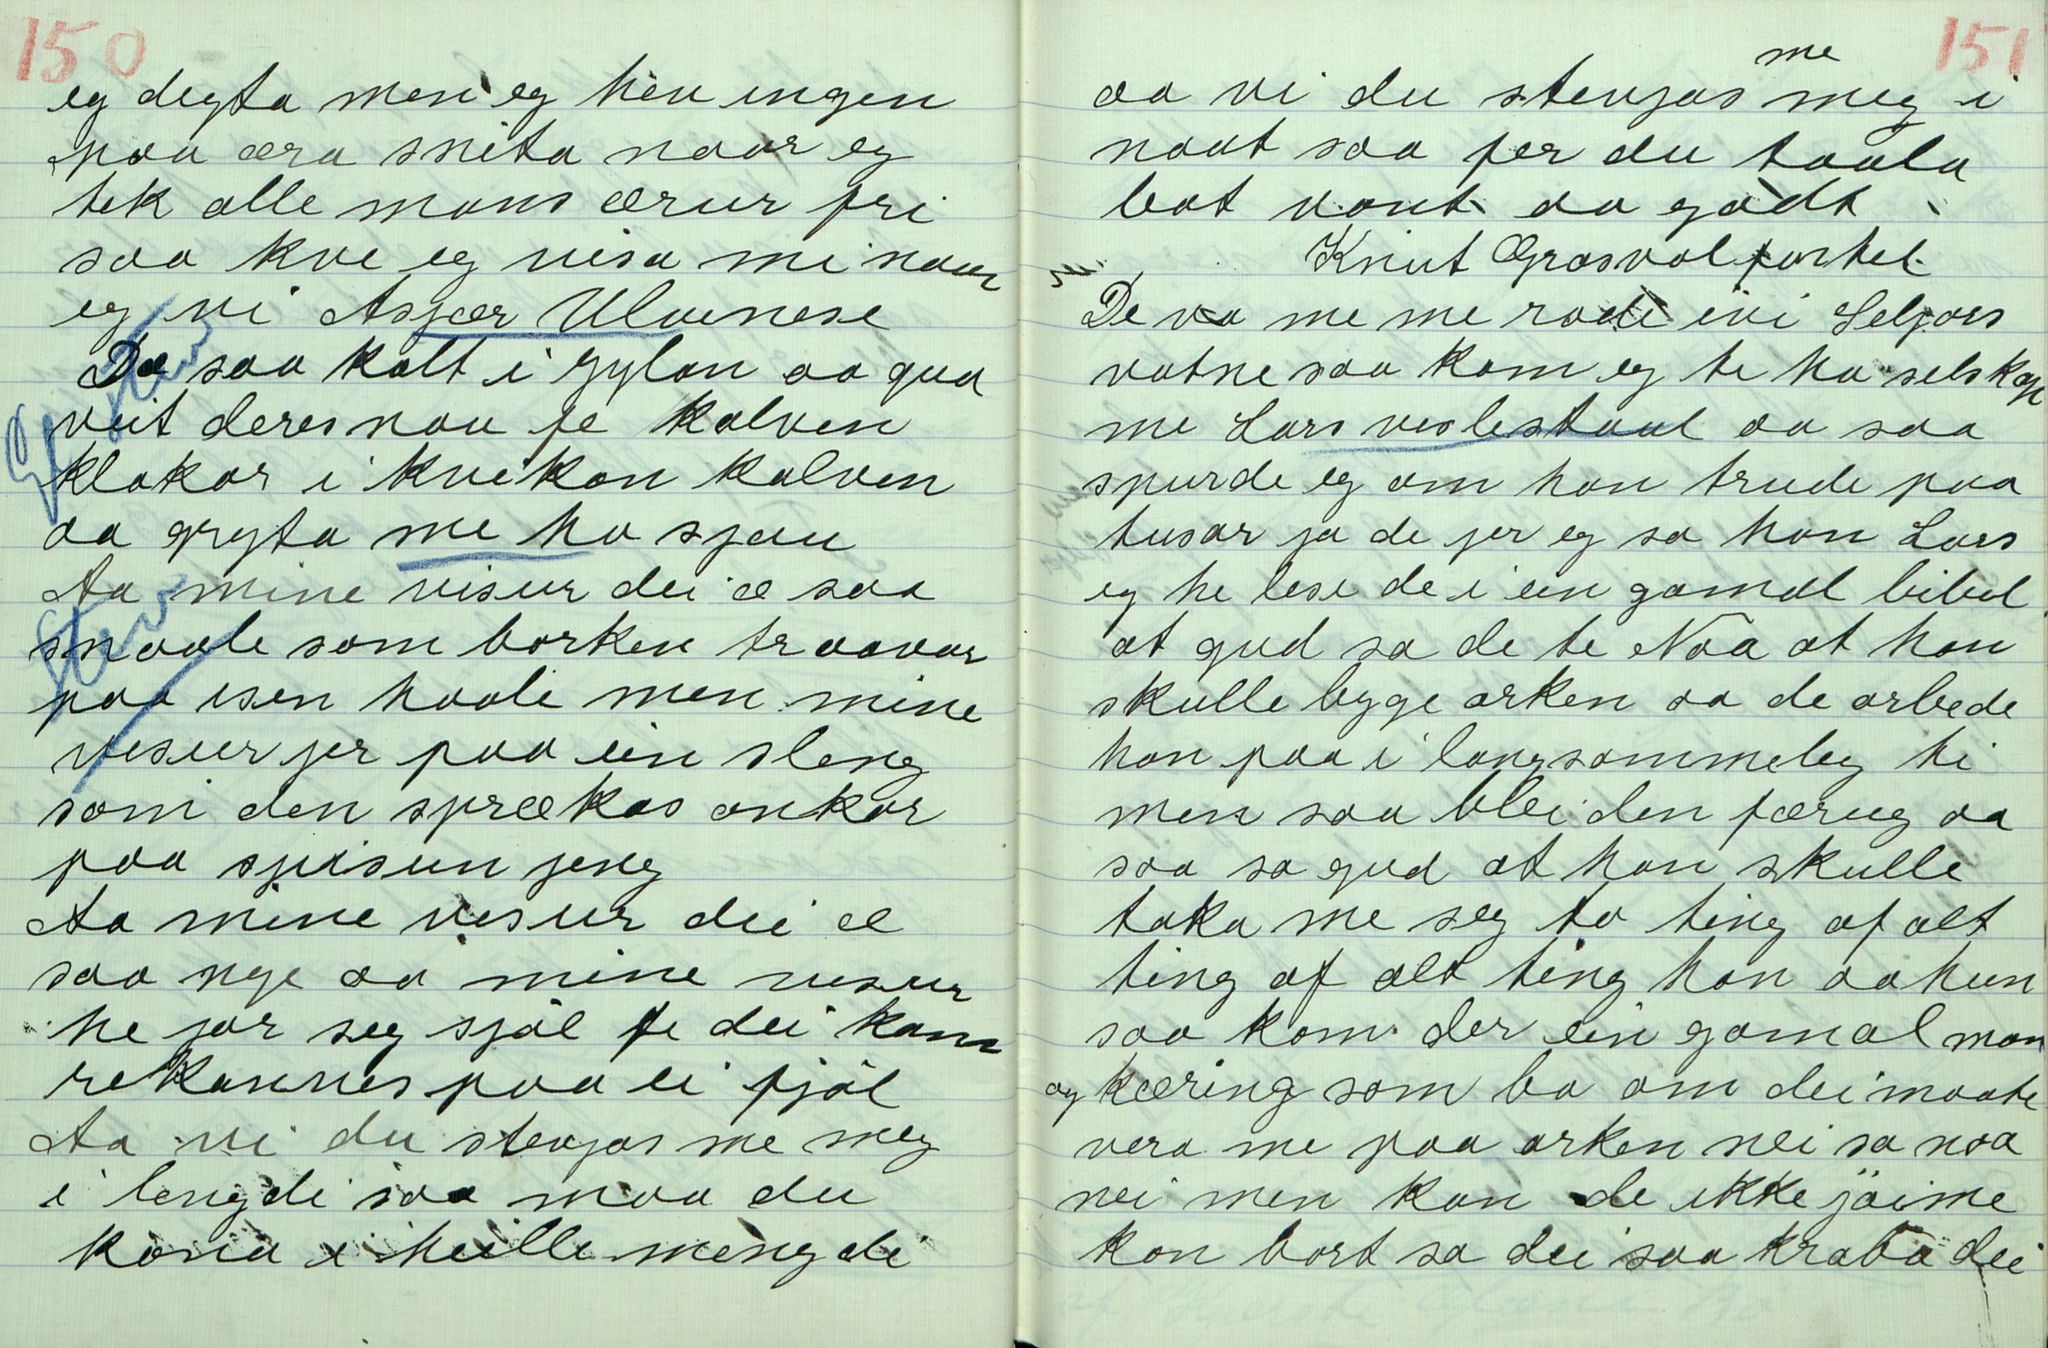 150
eg degta men eg hev ingen
paa æra snita naar eg
tek alle mans ærur fri
saa kve eg visa mi naar
eg vi Asjær Ulvenese
De saa kalt i gylan aa gud
veit deres nau fe kalven
klakar i kveikan kalven
aa gryta me ha sjau
Aa mine visur dei æ saa
snaale som borken traavar
paa isen haale men mine
visur jer paa ein sleng
som den sprækas ankar
paa spisun jeng
Aa mine visur dei æ
saa nye aa mine visur
he jor seg sjøl fe dei kann
rekannes paa ei fjøl
Aa vi du stevjas me meg
i lengdi saa maa du
kona i heille mengde
151
me
aa vi du stevjas meg i
naat saa fer du taala
bat vont aa godt
Knut Grasvol fortel
De va me me rodi ivi Seljors
vatne saa kom eg te ha selskap
me Lars veslestaul aa saa
spurde eg om han trude paa
tusar ja de jer eg sa han Lars
eg he lese de i ein gamal bibel
at gud sa de te Noa at han
skulle byge arken sa de arbede
han paa i langsommeleg ti
men saa blei den færug aa
saa sa gud at han skulle
taka me seg to ting af alt
ting af alt ting han aa hun
saa kom der ein gamal man
og kæring som ba om dei maate
vera me paa arken nei sa noa
nei men kan de ikke jøime
kon bort sa dei saa kraba dei